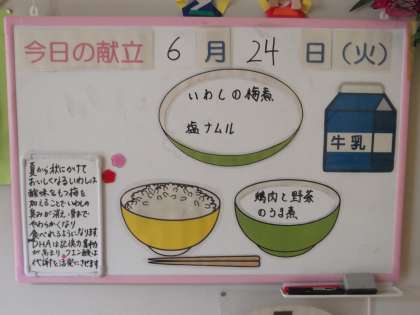 今日の献立 6月24日(火)
いわしの梅煮
塩ナムル
牛乳
鶏肉と野菜
のうま煮
夏から秋にかけて
おいしくなるいわしは
酸味をもつ梅を
加えることでいわしの
臭みが消え、骨まで
やわらかくなり
食べれるようになります
DHAは記憶力、集中力
が高まり、クエン酸は
代謝を活発にさせます